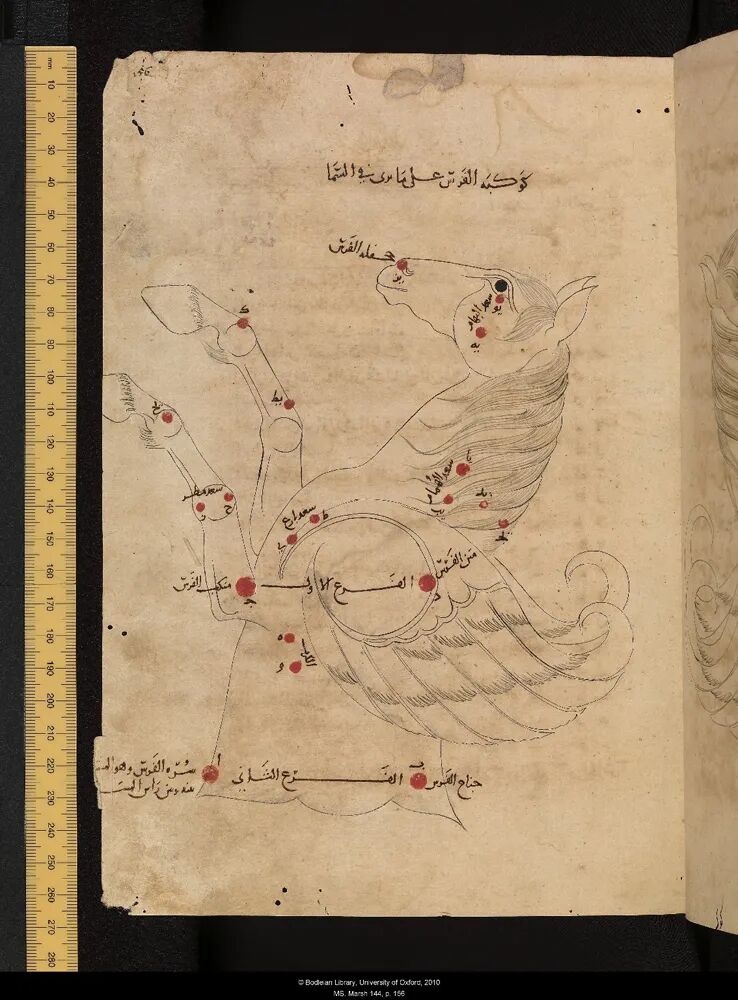 كوكبة الفرس على ما يرى في السما
جحفلة الفرس
يز
سعد البهام
يو
يه
ك
يط
يح
سعد الهمام
يا
يب
سعد مطر
ح
سعد بارع
ط
ى
متن الفرس
الفرغ الاول
منكب الفرس
ج
د
ه
الكرب
و
ب
ا
جناح الفرس
الفرغ الثاني
سرة الفرس وهو
راس
mm 10 20 30 40 50 60 70 80 90 100 110 120 130 140 150 160 170 180 190 200 210 220 230 240 250 260 270 280
© Bodleian Library, University of Oxford, 2010
MS. Marsh 144, p. 156